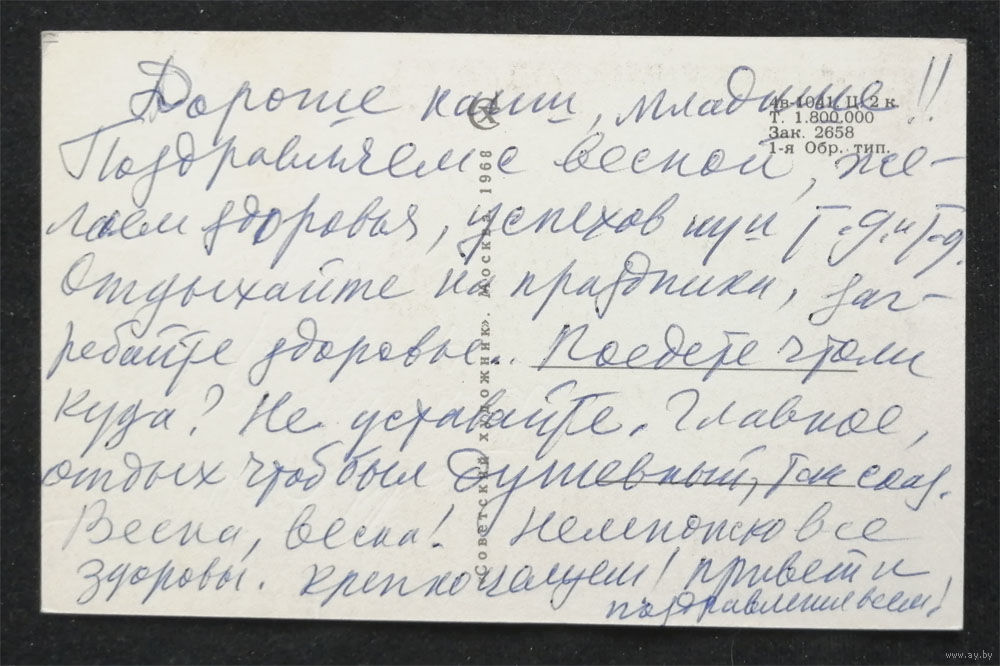 Дорогие наши, младшие!!
Поздравляем с весной, же-
лаем здоровья, успехов ну и т.д. и т.д.
Отдыхайте на праздники, заг-
ребайте здоровье.. Поедете что ли
куда? Не уставайте. Главное,
отдых чтоб был душевный, так сказ.
Весна, весна! Немножко все
здоровы. Крепко целуем! Привет и
поздравления всем!
4в-1041. Ц. 2 к.
Т. 1.800.000
Зак. 2658
1-я Обр. тип.
«Советский художник». Москва. 1968
www.ay.by